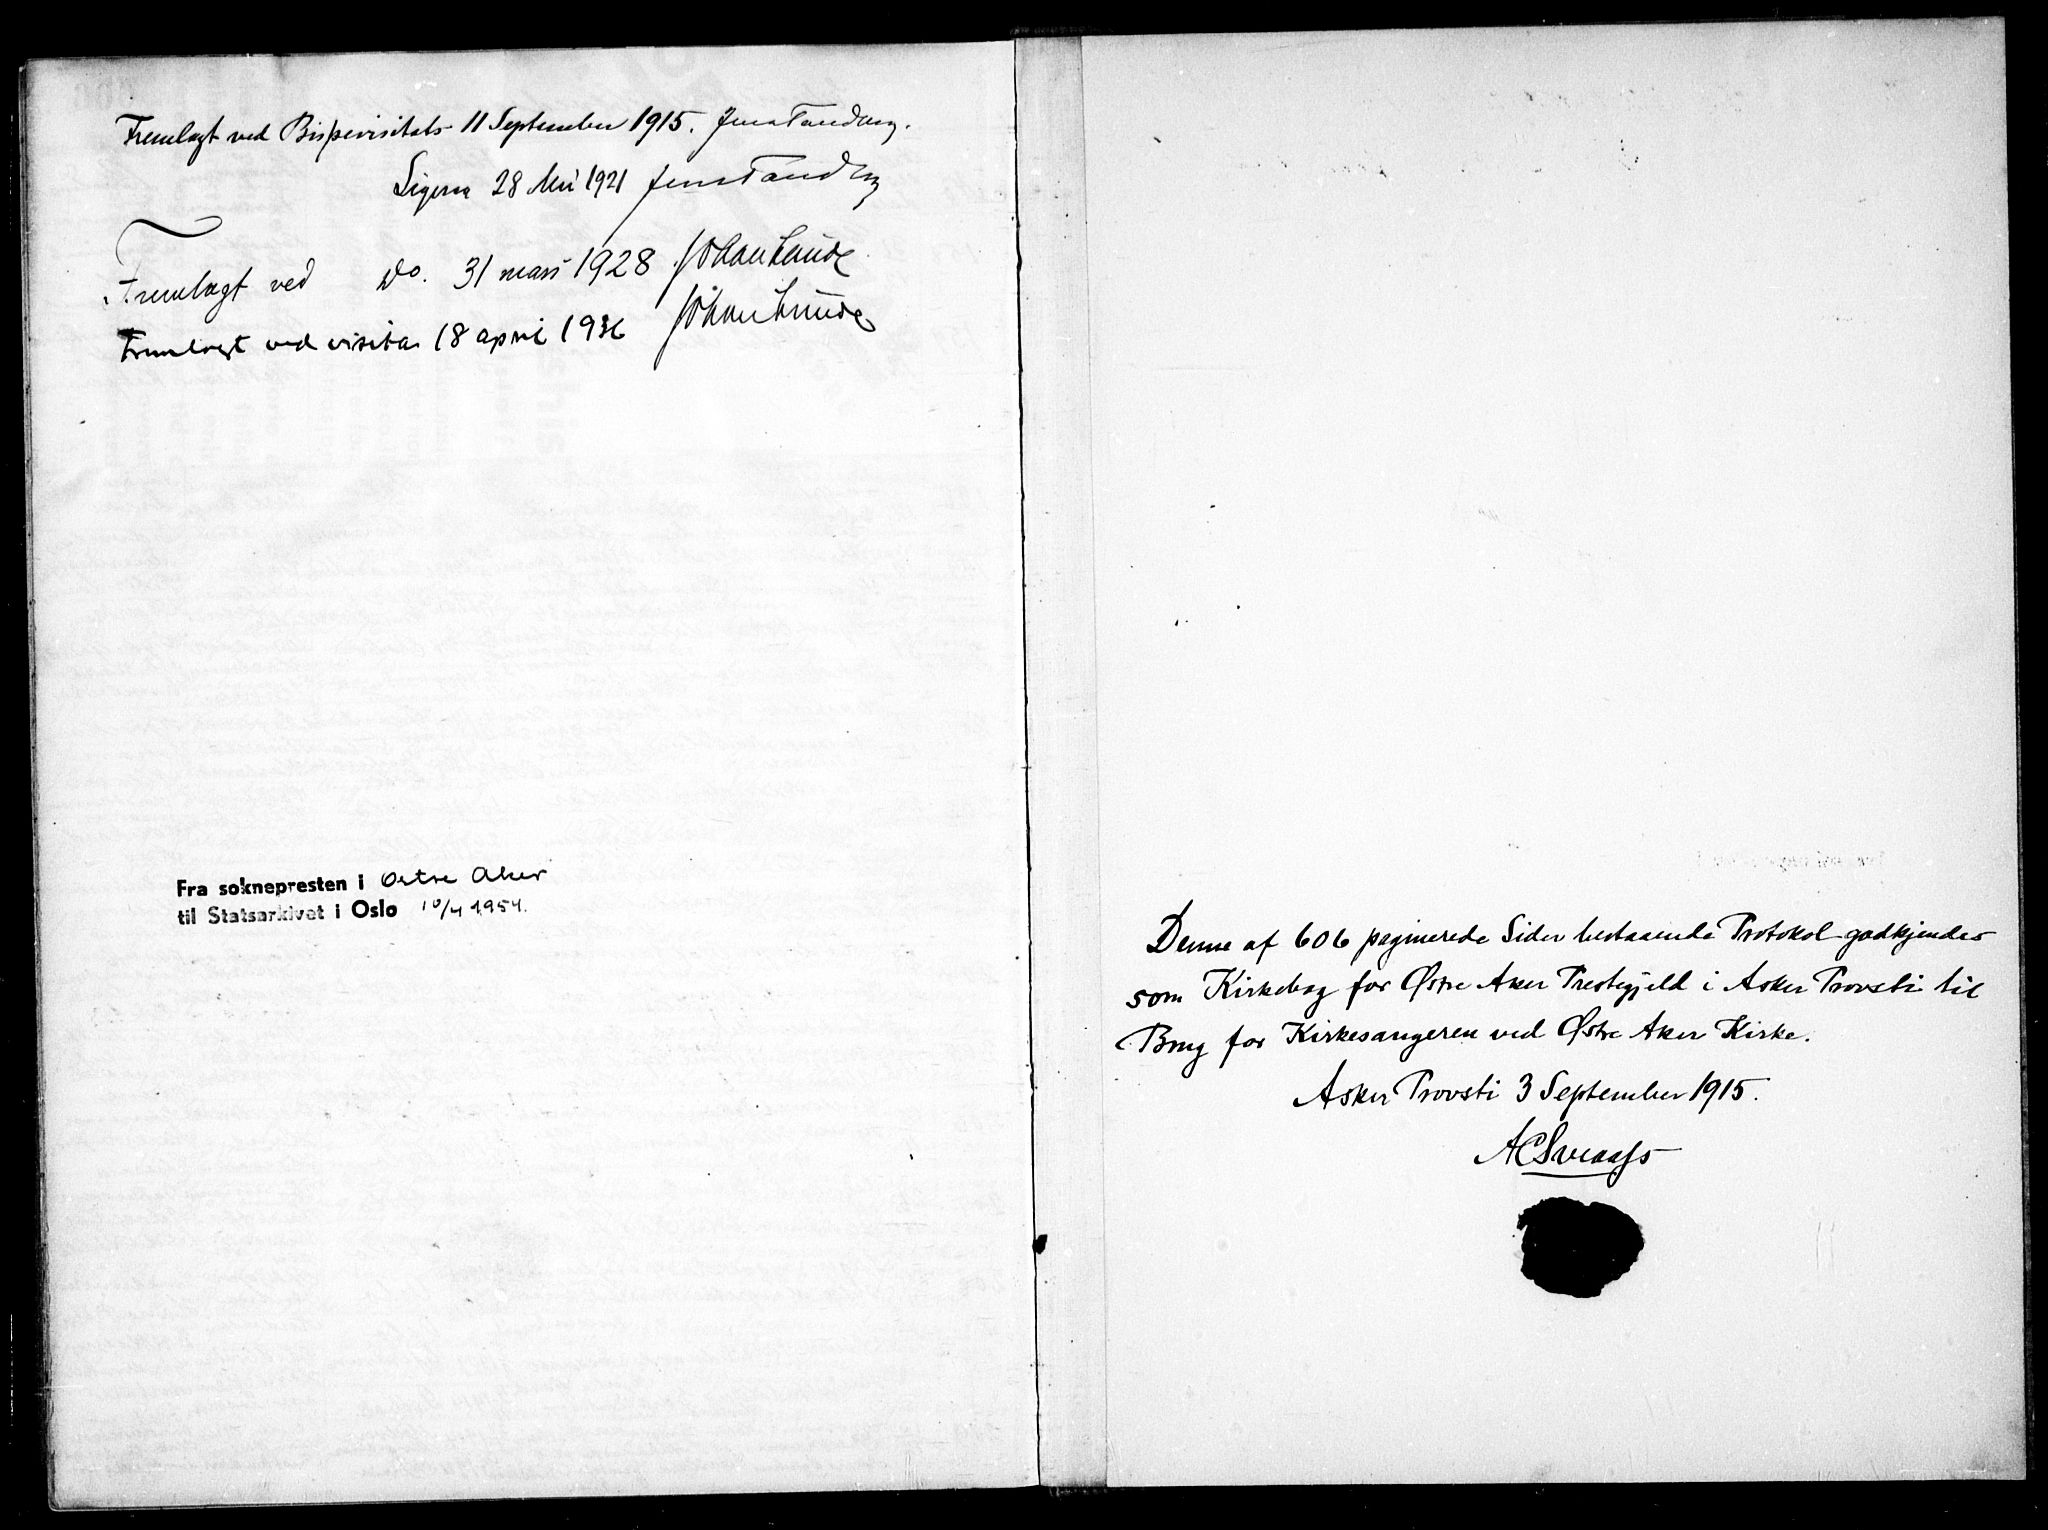 Fremlagt ved Bispevisitats 11 September 1915. Jens Tandberg.
Ligesaa 28 Mai 1921 Jens Tandberg
Fremlagt ved Do. 31 mars 1928 Johan Lunde
Fremlagt ved visitas 18 april 1936 Johan Lunde
Fra soknepresten i Østre Aker
til Statsarkivet i Oslo 10/4 1954.
Denne af 606 paginerede Sider bestaaende Protokol godkjendes
som Kirkebog for Østre Aker Prestegjeld i Asker Provsti til
Brug for Kirkesangeren ved Østre Aker Kirke.
Asker Provsti 3 September 1915.